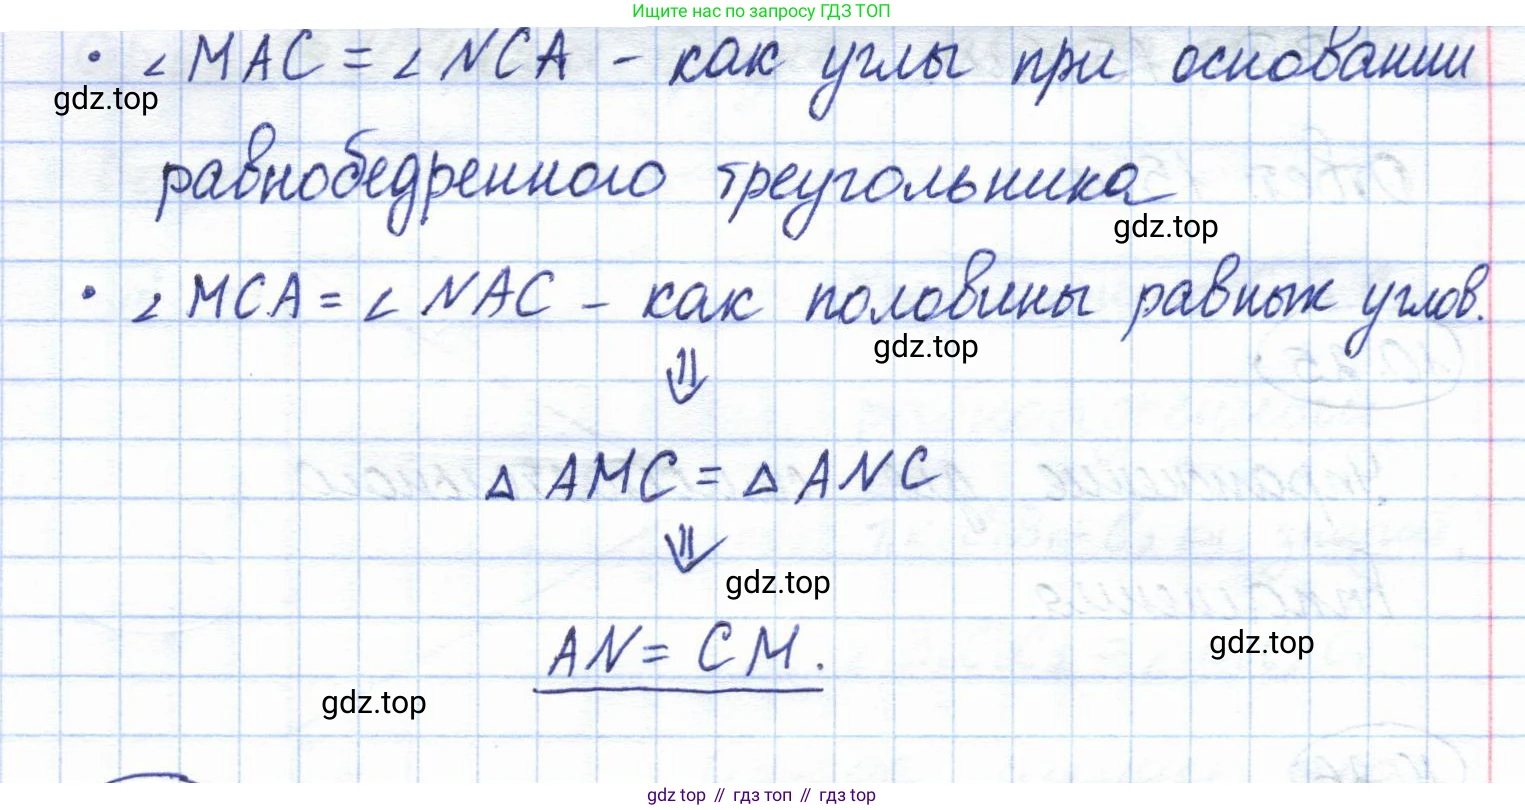 Ищите нас по запросу ГДЗ ТОП
• ∠ MAC = ∠ NCA – как углы при основании
gdz.top
равнобедренного треугольника
gdz.top
• ∠ MCA = ∠ NAC – как половины равных углов.
gdz.top
⇓
△ AMC = △ ANC
⇓
gdz.top
AN = CM.
gdz.top
gdz.top
gdz top // гдз топ // гдз top